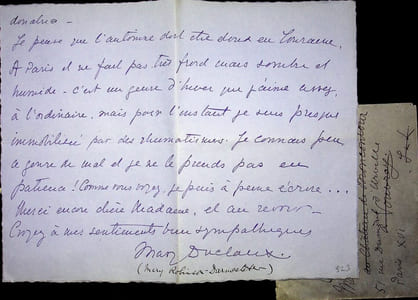 donatrice –
Je pense que l'automne doit être doux en Touraine.
A Paris il ne fait pas très froid mais sombre et
humide – c'est un genre d'hiver que j'aime assez,
à l'ordinaire, mais pour l'instant je suis presque
immobilisée par des rhumatismes. Je connais peu
ce genre de mal et je ne le prends pas en
patience ! Comme vous voyez, je puis à peine écrire ...
Merci encore chère Madame, et au revoir –
Croyez à mes sentiments bien sympathiques
Mary Duclaux.
(Mary Robinson-Darmesteter)
51 rue
Paris XVI